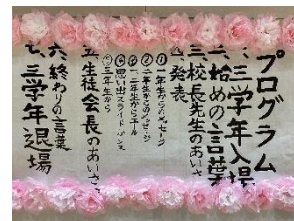 プログラム
、三学年入場
二、始めの言葉
三校長先生のあいさ
四、発表
① 一年生からのメッセージ
② 二年生からのメッセージ
③ 一、二年生からエール
④ 思い出スライド
⑤ 三年生から
五生徒会長のあいさ
六、終わりの言葉
七、三学年退場